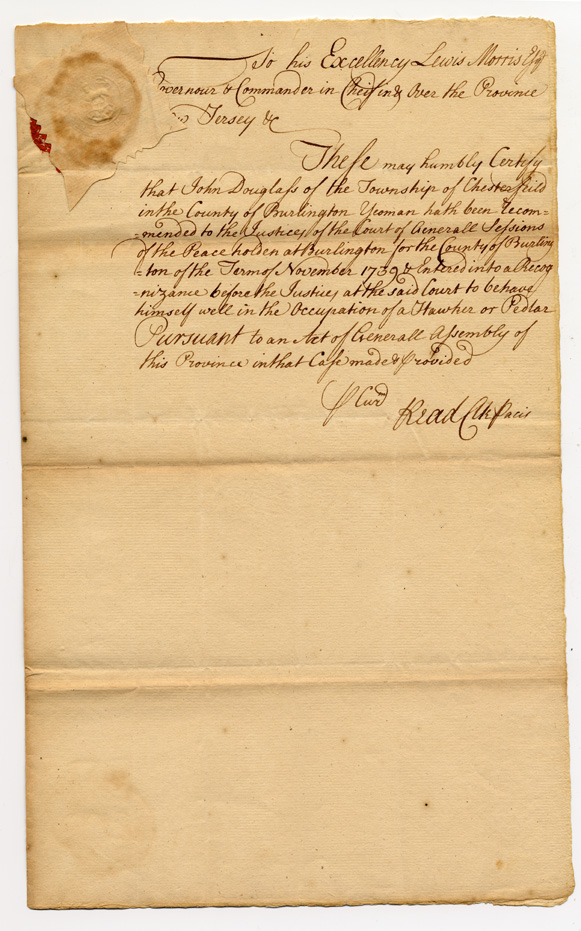 To his Excellency Lewis Morris Esqr
vernour & Commander in Cheif in & Over the Province
Jersey &c
These may humbly Certify
that John Douglass of the Township of Chesterfeild
in the County of Burlington Yeoman hath been Recom=
=mended to the Justices of the Court of Generall Sessions
of the Peace holden at Burlington for the County of Burling
=ton of the Term of November 1739 & Entered into a Recog
=nizance before the Justices at the said Court to behave
himself well in the Occupation of a Hawker or Pedlar
Pursuant to an Act of Generall Assembly of
this Province in that Case made & Provided
P Cur
Read Clk Pacis